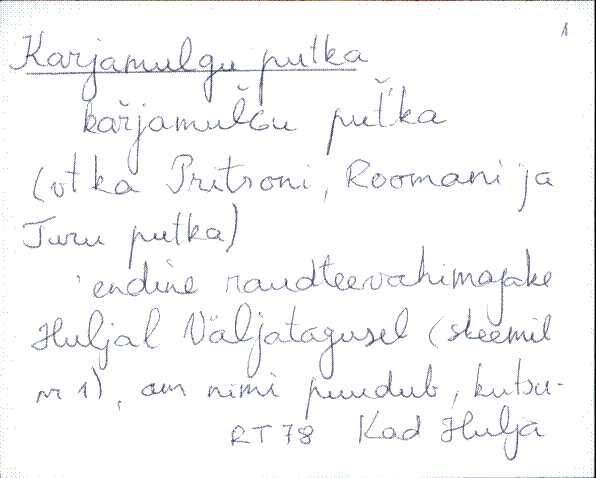 1
Karjamulgu putka
kařjamuľGu puťka
(vt ka Pritsoni, Roomani ja
Turu putka)
endine raudteevahimajake
Huljal Väljatagusel (skeemil
nr 1), am nimi puudub, kutsu-
RT 78 Kad Hulja